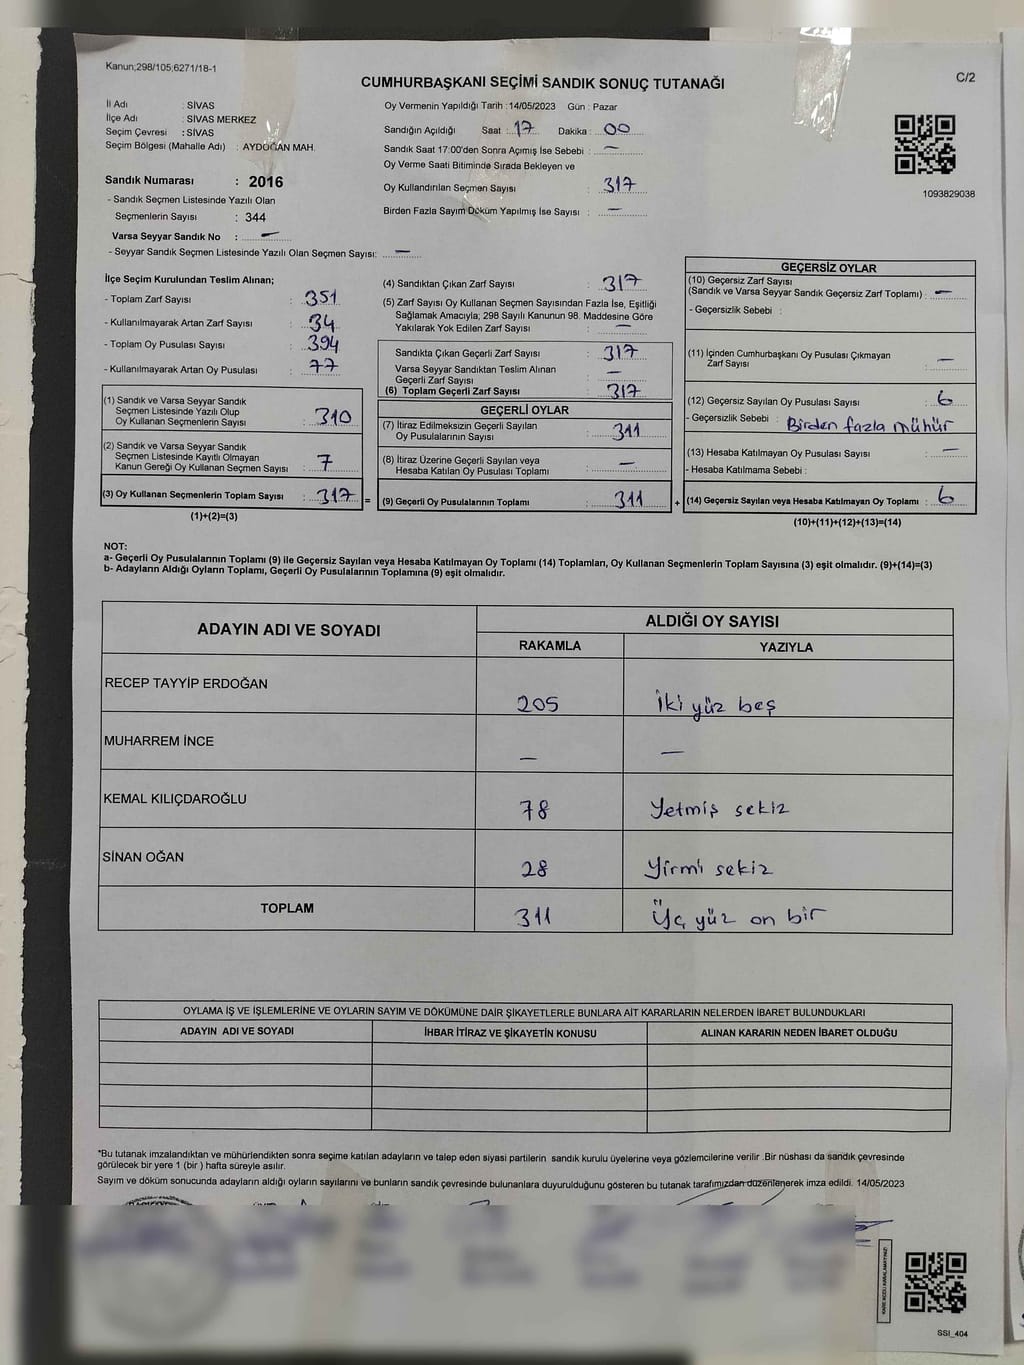 Kanun;298/105;6271/18-1
C/2
CUMHURBAŞKANI SEÇİMİ SANDIK SONUÇ TUTANAĞI
İl Adı : SİVAS
İlçe Adı : SİVAS MERKEZ
Seçim Çevresi : SİVAS
Seçim Bölgesi (Mahalle Adı) : AYDOĞAN MAH.
Sandık Numarası : 2016
- Sandık Seçmen Listesinde Yazılı Olan
Seçmenlerin Sayısı : 344
Varsa Seyyar Sandık No : —
- Seyyar Sandık Seçmen Listesinde Yazılı Olan Seçmen Sayısı: —
Oy Vermenin Yapıldığı Tarih :14/05/2023 Gün : Pazar
Sandığın Açıldığı Saat : 17 Dakika : 00
Sandık Saat 17:00'den Sonra Açımış İse Sebebi : —
Oy Verme Saati Bitiminde Sırada Bekleyen ve
Oy Kullandırılan Seçmen Sayısı : 317
Birden Fazla Sayım Döküm Yapılmış İse Sayısı : —
1093829038
İlçe Seçim Kurulundan Teslim Alınan;
- Toplam Zarf Sayısı : 351
- Kullanılmayarak Artan Zarf Sayısı : 34
- Toplam Oy Pusulası Sayısı : 394
- Kullanılmayarak Artan Oy Pusulası : 77
(1) Sandık ve Varsa Seyyar Sandık
Seçmen Listesinde Yazılı Olup
Oy Kullanan Seçmenlerin Sayısı : 310
(2) Sandık ve Varsa Seyyar Sandık
Seçmen Listesinde Kayıtlı Olmayan
Kanun Gereği Oy Kullanan Seçmen Sayısı : 7
(3) Oy Kullanan Seçmenlerin Toplam Sayısı : 317 =
(1)+(2)=(3)
(4) Sandıktan Çıkan Zarf Sayısı : 317
(5) Zarf Sayısı Oy Kullanan Seçmen Sayısından Fazla İse, Eşitliği
Sağlamak Amacıyla; 298 Sayılı Kanunun 98. Maddesine Göre
Yakılarak Yok Edilen Zarf Sayısı : —
Sandıkta Çıkan Geçerli Zarf Sayısı : 317
Varsa Seyyar Sandıktan Teslim Alınan
Geçerli Zarf Sayısı : —
(6) Toplam Geçerli Zarf Sayısı : 317
GEÇERLİ OYLAR
(7) İtiraz Edilmeksizin Geçerli Sayılan
Oy Pusulalarının Sayısı : 311
(8) İtiraz Üzerine Geçerli Sayılan veya
Hesaba Katılan Oy Pusulası Toplamı : —
(9) Geçerli Oy Pusulalarının Toplamı : 311 +
GEÇERSİZ OYLAR
(10) Geçersiz Zarf Sayısı
(Sandık ve Varsa Seyyar Sandık Geçersiz Zarf Toplamı) : —
- Geçersizlik Sebebi :
(11) İçinden Cumhurbaşkanı Oy Pusulası Çıkmayan
Zarf Sayısı : —
(12) Geçersiz Sayılan Oy Pusulası Sayısı : 6
- Geçersizlik Sebebi : Birden fazla mühür
(13) Hesaba Katılmayan Oy Pusulası Sayısı : —
- Hesaba Katılmama Sebebi :
(14) Geçersiz Sayılan veya Hesaba Katılmayan Oy Toplamı : 6
(10)+(11)+(12)+(13)=(14)
NOT:
a- Geçerli Oy Pusulalarının Toplamı (9) ile Geçersiz Sayılan veya Hesaba Katılmayan Oy Toplamı (14) Toplamları, Oy Kullanan Seçmenlerin Toplam Sayısına (3) eşit olmalıdır. (9)+(14)=(3)
b- Adayların Aldığı Oyların Toplamı, Geçerli Oy Pusulalarının Toplamına (9) eşit olmalıdır.
ADAYIN ADI VE SOYADI
ALDIĞI OY SAYISI
RAKAMLA YAZIYLA
RECEP TAYYİP ERDOĞAN 205 İki yüz beş
MUHARREM İNCE — —
KEMAL KILIÇDAROĞLU 78 Yetmiş sekiz
SİNAN OĞAN 28 Yirmi sekiz
TOPLAM 311 Üç yüz on bir
OYLAMA İŞ VE İŞLEMLERİNE VE OYLARIN SAYIM VE DÖKÜMÜNE DAİR ŞİKAYETLERLE BUNLARA AİT KARARLARIN NELERDEN İBARET BULUNDUKLARI
ADAYIN ADI VE SOYADI İHBAR İTİRAZ VE ŞİKAYETİN KONUSU ALINAN KARARIN NEDEN İBARET OLDUĞU
*Bu tutanak imzalandıktan ve mühürlendikten sonra seçime katılan adayların ve talep eden siyasi partilerin sandık kurulu üyelerine veya gözlemcilerine verilir .Bir nüshası da sandık çevresinde
görülecek bir yere 1 (bir ) hafta süreyle asılır.
Sayım ve döküm sonucunda adayların aldığı oyların sayılarını ve bunların sandık çevresinde bulunanlara duyurulduğunu gösteren bu tutanak tarafımızdan düzenlenerek imza edildi. 14/05/2023
SSI_404